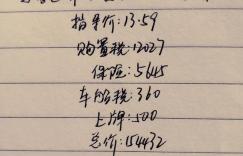 指导价:13.59
购置税:12027
保险:5645
车船税:360
上牌:500
总价:154432